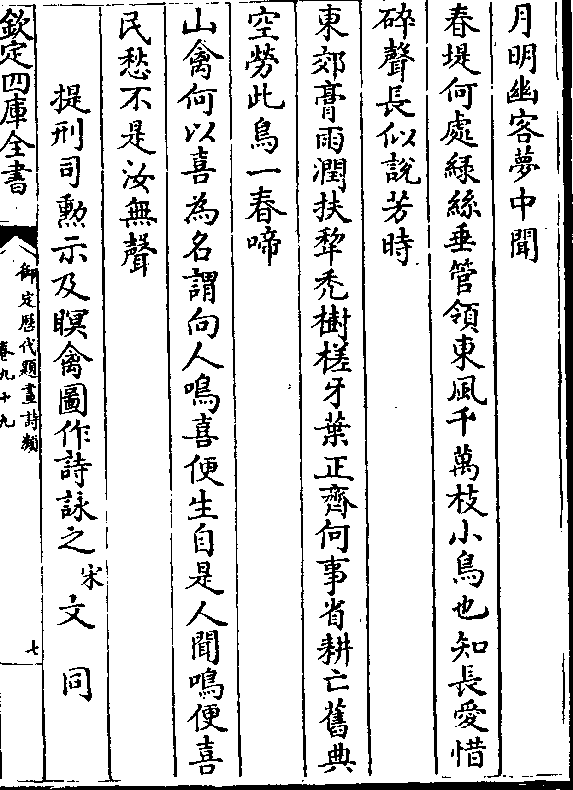 月明幽客夢中聞
春堤何處緑絲垂管領東風千萬枝小鳥也知長愛惜
碎聲長似說芳時
東郊膏雨潤扶犂禿樹槎牙葉正齊何事省耕亡舊典
空勞此鳥一春啼
山禽何以喜為名謂向人鳴喜便生自是人聞鳴便喜
民愁不是汝無聲
提刑司勲示及瞑禽圖作詩詠之宋文同
欽定四庫全書
御定歷代題畫詩類
卷九十九
七